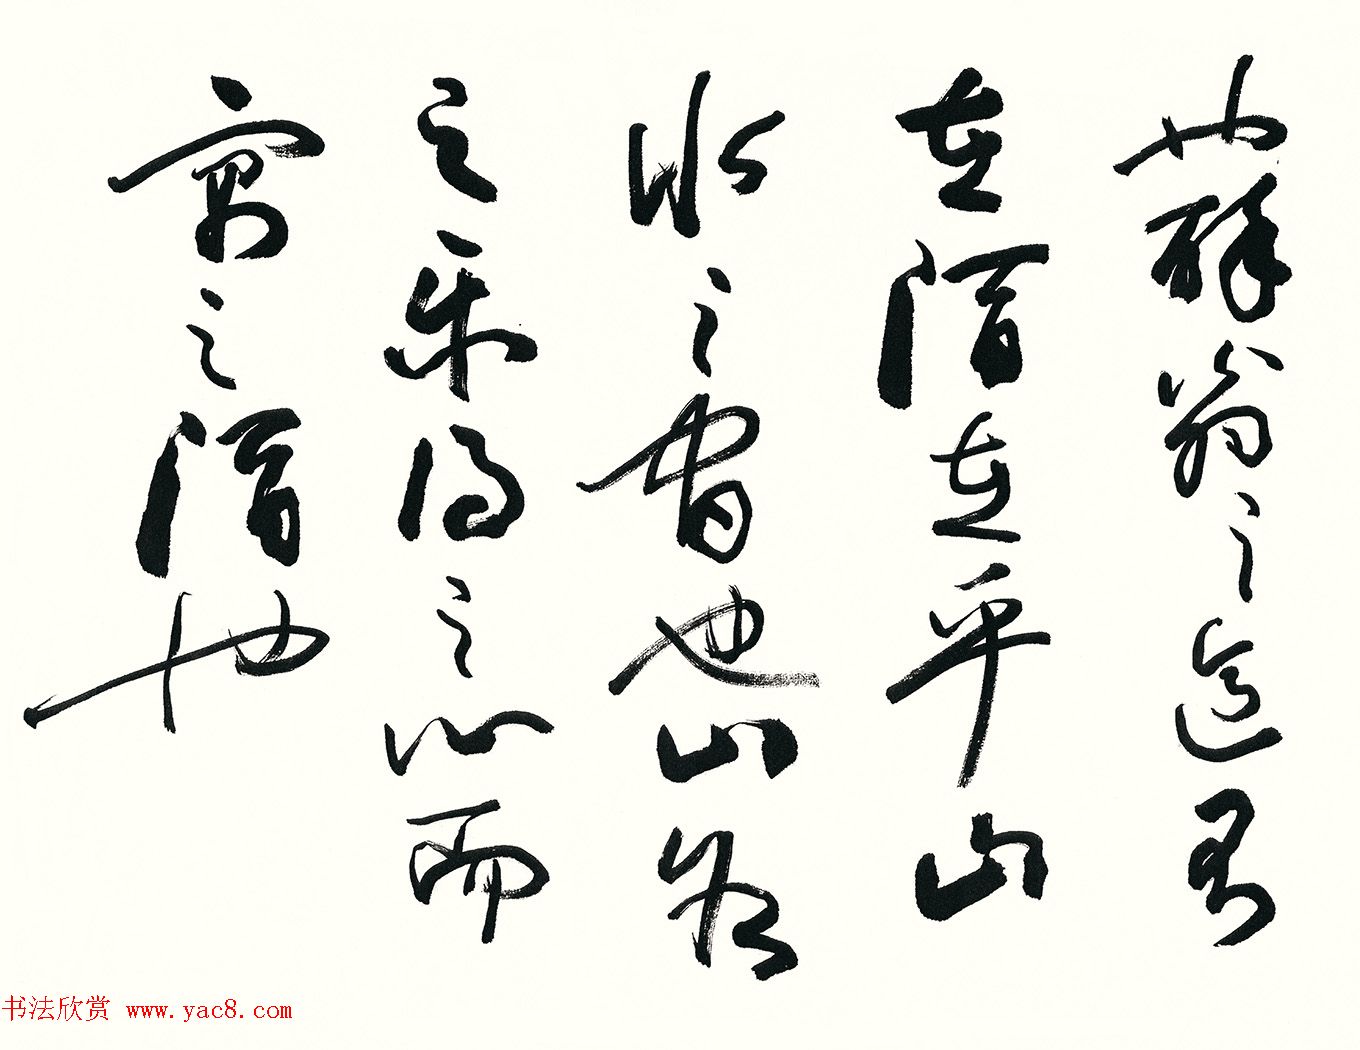 也醉翁之意不
在酒在乎山
水之间也山水
之乐得之心而
寓之酒也
书法欣赏 www.yac8.com